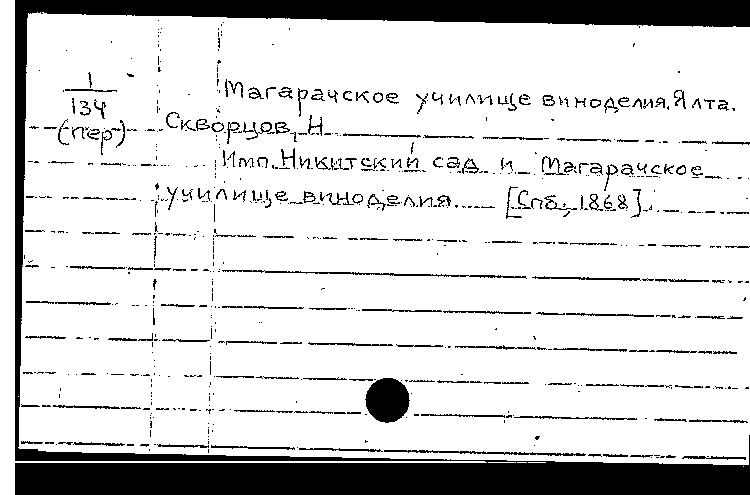 1
134
(пер)
Магарачское училище виноделия. Ялта.
Скворцов, Н
Имп. Никитский сад и Магарачское
училище виноделия. [Спб., 1868].